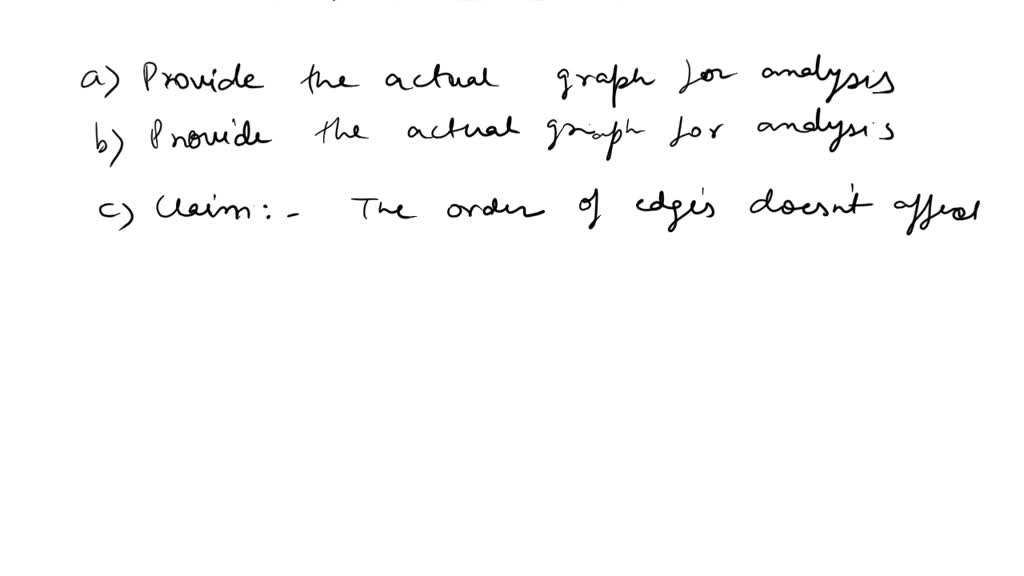 a) Provide the actual graph for analysis
b) Provide the actual graph for analysis
c) Claim:- The order of edges doesn't affect